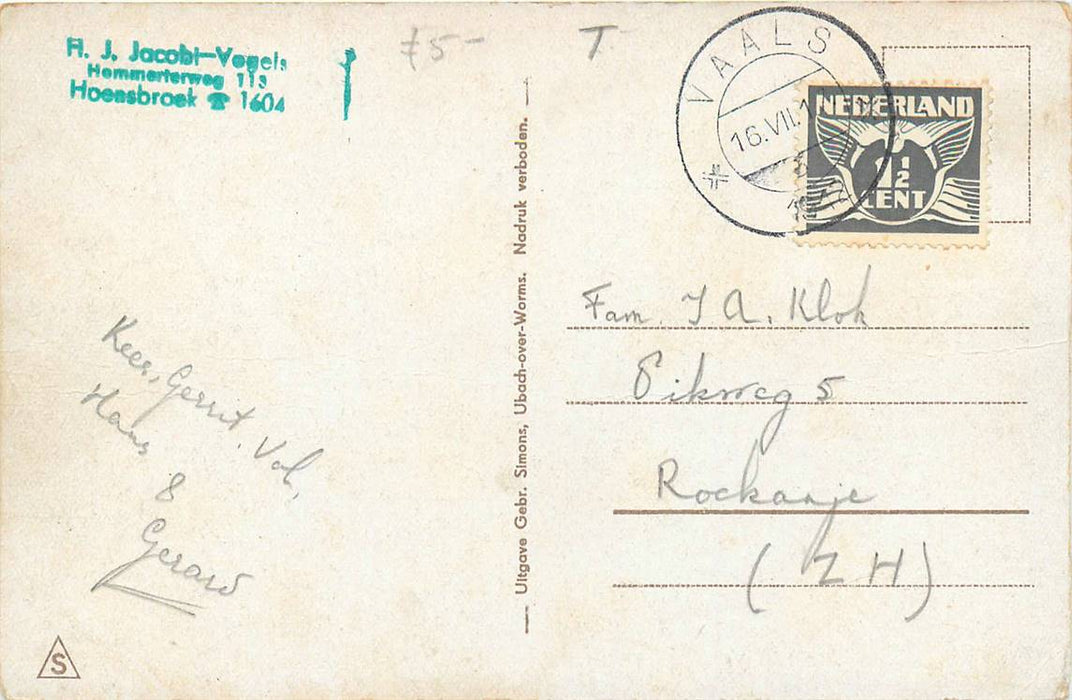 H. J. Jacobi-Vogels
Hommerterweg 113
Hoensbroek ☎ 1604
f5-
T
VAALS
16.VII.1
NEDERLAND
1½
CENT
Fam. J A. Klok
Pikweg 5
Rockanje
(ZH)
Kees, Gerrit, Vol,
Hans
&
Gerard
Uitgave Gebr. Simons, Ubach-over-Worms. Nadruk verboden.
S